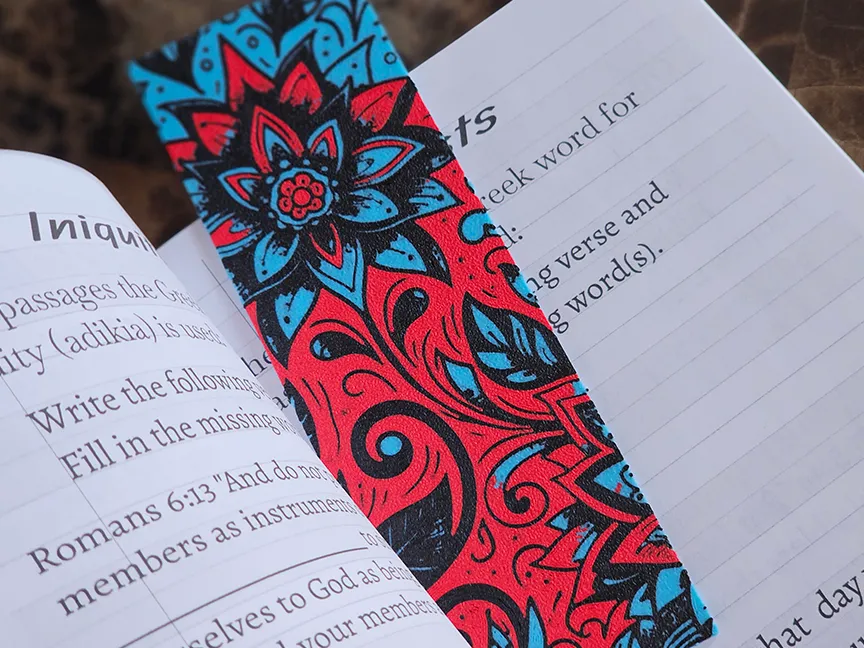 Iniqui
passages the Gree
uity (adikia) is used
Write the following
Fill in the missing
Romans 6:13 "And do not
members as instruments
to
selves to God as being
your members
ts
eek word for
ng verse and
g word(s).
hat day